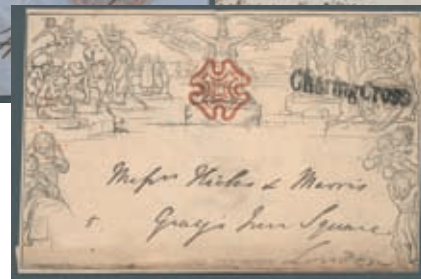 Charing Cross
Messrs & Morris
Grays Inn Square
London